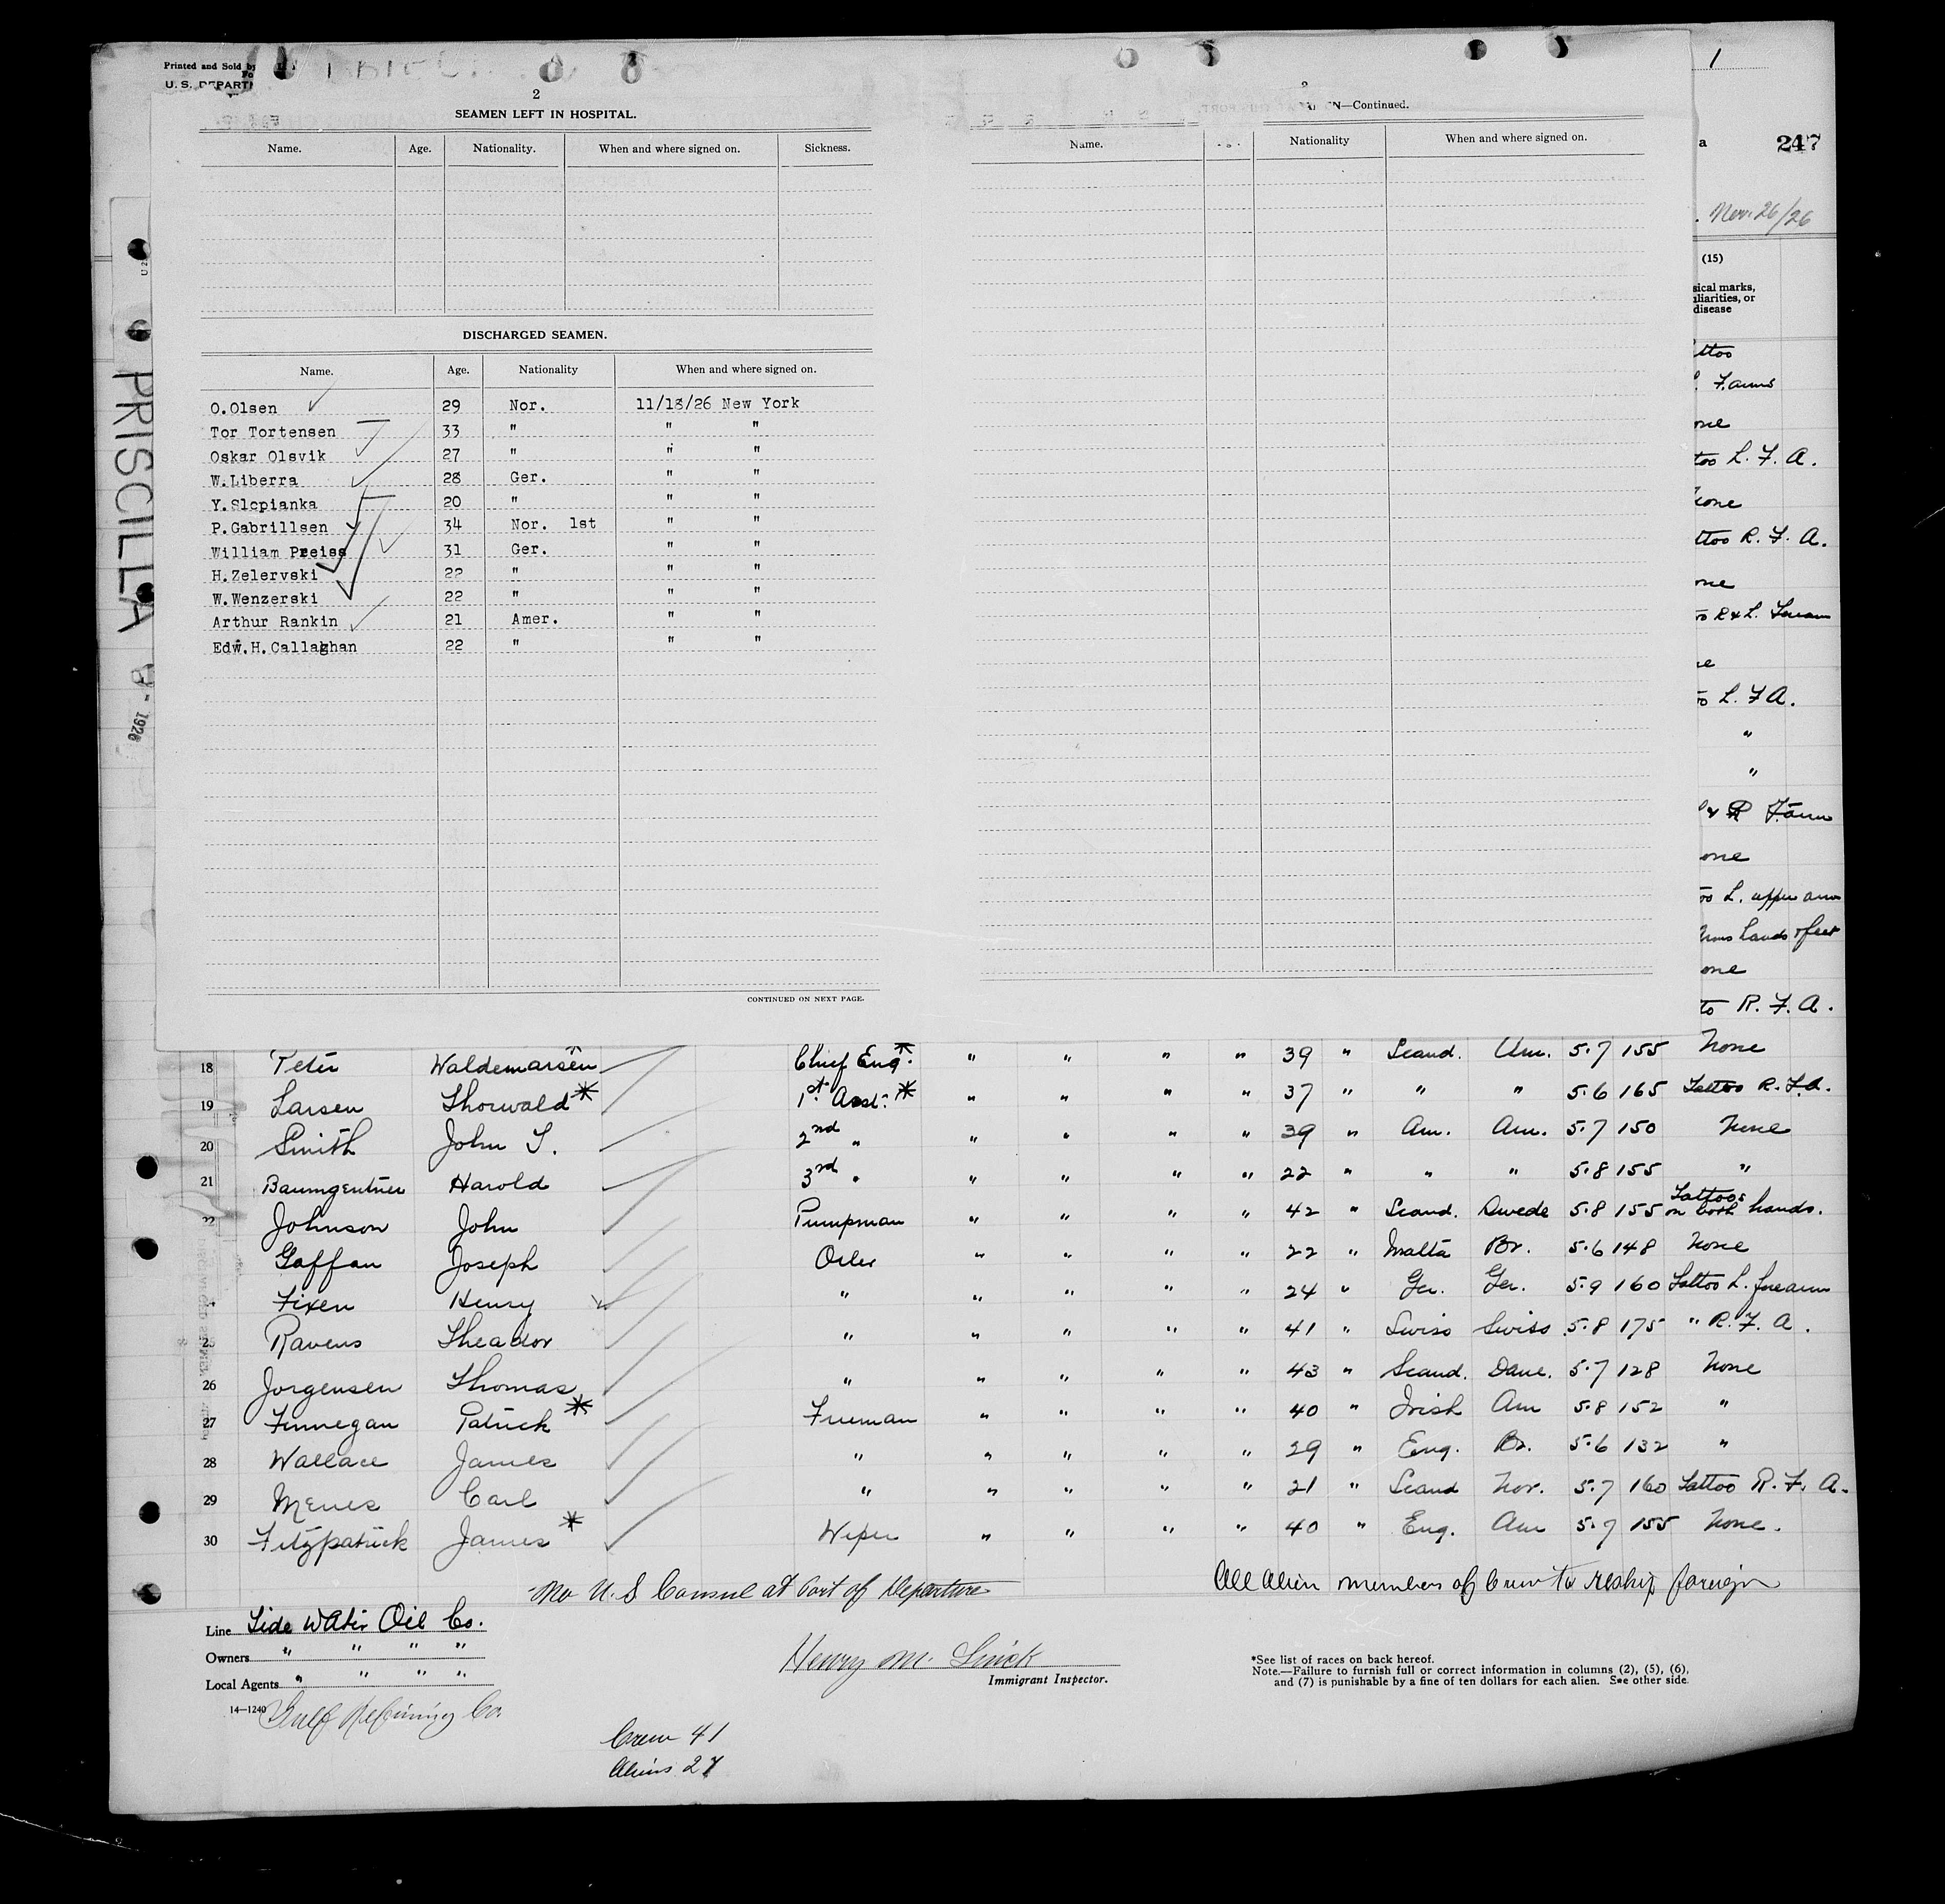 Printed and Sold by
U. S. DEPARTM
2
SEAMEN LEFT IN HOSPITAL.
Name. Age. Nationality. When and where signed on. Sickness.
DISCHARGED SEAMEN.
Name. Age. Nationality When and where signed on.
O.Olsen 29 Nor. 11/18/26 New York
Tor Tortensen 33 " " "
Oskar Olsvik 27 " " "
W.Liberra 28 Ger. " "
Y.Slopianka 20 " " "
P.Gabrillsen 34 Nor. 1st " "
William Preiss 31 Ger. " "
H.Zelervski 22 " " "
W.Wenzerski 22 " " "
Arthur Rankin 21 Amer. " "
Edw.H.Callaghan 22 " " "
CONTINUED ON NEXT PAGE.
—Continued.
Name. Nationality When and where signed on.
1
a 247
Nov. 26/26
(15)
sical marks,
uliarities, or
disease
ttoo
F. arms
one
too L. F. A.
None
ttoo R. F. A.
one
oo R & L. Forearm
ne
oo L. F A.
"
"
& R F. arm
one
oo L. upper arm
hands & feet
one
to R. F. A.
PRISCILLA
1926
18 Peter Waldemarsen Chief Eng.* " " " " 39 " Scand. Am. 5.7 155 None
19 Larsen Thorwald * 1st. Asst. * " " " " 37 " " " 5.6 165 Tattoo R. F.A.
20 Smith John T. 2nd " " " " " 39 " Am. Am. 5.7 150 None
21 Baumgentner Harold 3rd " " " " " 22 " " " 5.8 155 "
22 Johnson John Pumpman " " " " 42 " Scand. Swede 5.8 155 Tattoos on both hands.
Gaffan Joseph Oiler " " " " 22 " Malta Br. 5.6 148 None
Fixen Henry " " " " " 24 " Ger. Ger. 5.9 160 Tattoo L. forearm
25 Ravens Theador " " " " " 41 " Swiss Swiss 5.8 175 " R. F. A.
26 Jorgensen Thomas " " " " " 43 " Scand. Dane. 5.7 128 None
27 Finnegan Patrick * Fireman " " " " 40 " Irish Am 5.8 152 "
28 Wallace James " " " " " 29 " Eng. Br. 5.6 132 "
29 Menes Carl " " " " " 21 " Scand Nor. 5.7 160 Tattoo R. F. A.
30 Fitzpatrick James * Wiper " " " " 40 " Eng. Am 5.7 155 None.
No U. S Consul at Port of Departure
All Alien members of Crew to reship foreign
Line Tide Water Oil Co.
Owners " " " "
Local Agents " " " "
14—1240 Gulf Refining Co.
Henry M. Sinick
Immigrant Inspector.
*See list of races on back hereof.
Note.—Failure to furnish full or correct information in columns (2), (5), (6),
and (7) is punishable by a fine of ten dollars for each alien. See other side.
Crew 41
Aliens 27